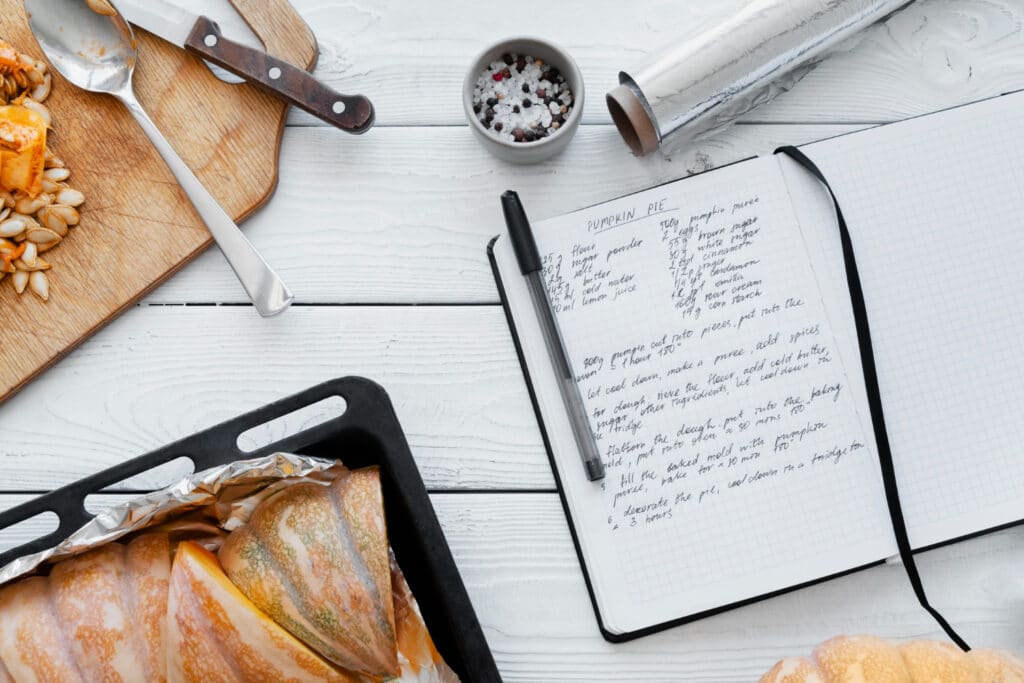 PUMPKIN PIE
flour
sugar powder
salt
butter
ml cold water
ml lemon juice
500g pumpkin puree
2 eggs
55g brown sugar
30g white sugar
cinnamon
1/2 ginger
cardamom
vanilla
160g sour cream
15g corn starch
800g pumpkin cut into pieces, put into the
oven 1 hour 180°
let cool down, make a puree, add spices
for dough, sieve the flour, add cold butter,
sugar, other ingredients, let cool down in
fridge
flatten the dough, put into the baking
mold, put into oven ≈ 30 mins 180°
5 fill the baked mold with pumpkin
puree, bake for ≈ 30 mins 180°
6 decorate the pie, cool down in a fridge for
≈ 3 hours